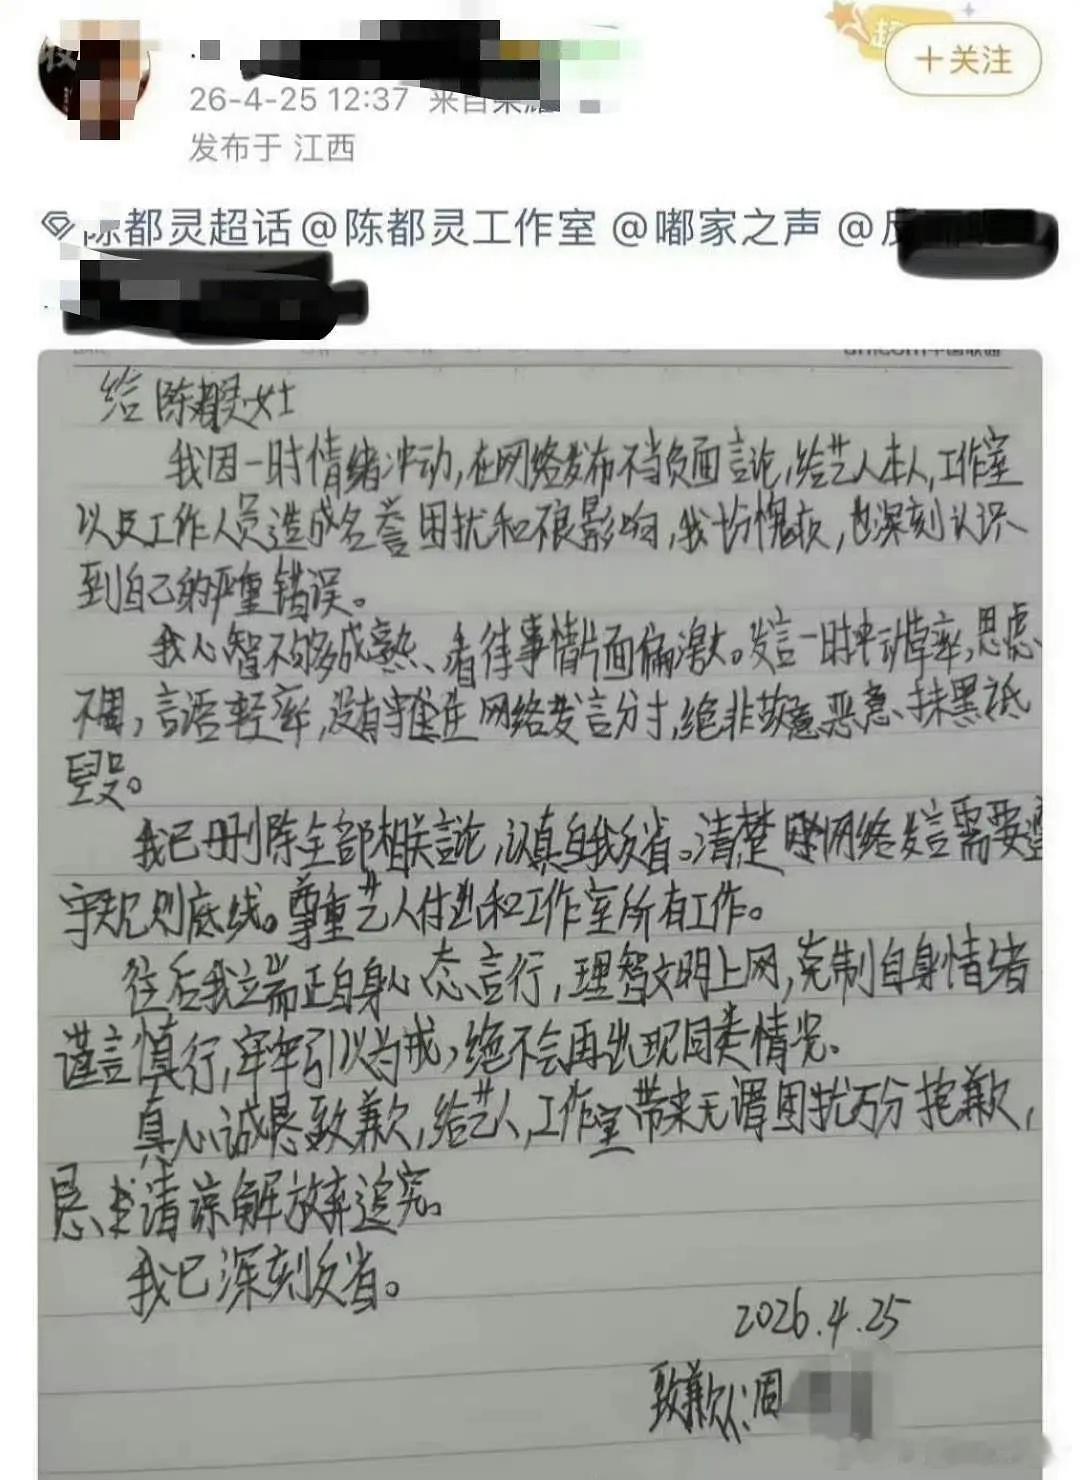 +关注
26-4-25 12:37 来自荣耀
发布于 江西
陈都灵超话@陈都灵工作室 @嘟家之声 @反
unicom中国联通
给陈都灵女士
我因一时情绪冲动,在网络发布不当负面言论,给艺人本人,工作室
以及工作人员造成名誉困扰和不良影响,我十分愧疚,也深刻认识
到自己的严重错误。
我心智不够成熟、看待事情片面偏激。发言一时冲动草率,思虑
不周,言语轻率,没有守住网络发言分寸,绝非故意恶意、抹黑诋
毁。
我已删除全部相关言论,认真自我反省。清楚网络发言需要遵
守规则底线。尊重艺人付出和工作室所有工作。
往后我立端正自身心态言行,理智文明上网,克制自身情绪
谨言慎行,牢牢引以为戒,绝不会再出现同类情况。
真心诚恳致歉,给艺人,工作室带来无谓困扰万分抱歉,
恳请谅解放弃追究。
我已深刻反省。
2026.4.25
致歉人:周